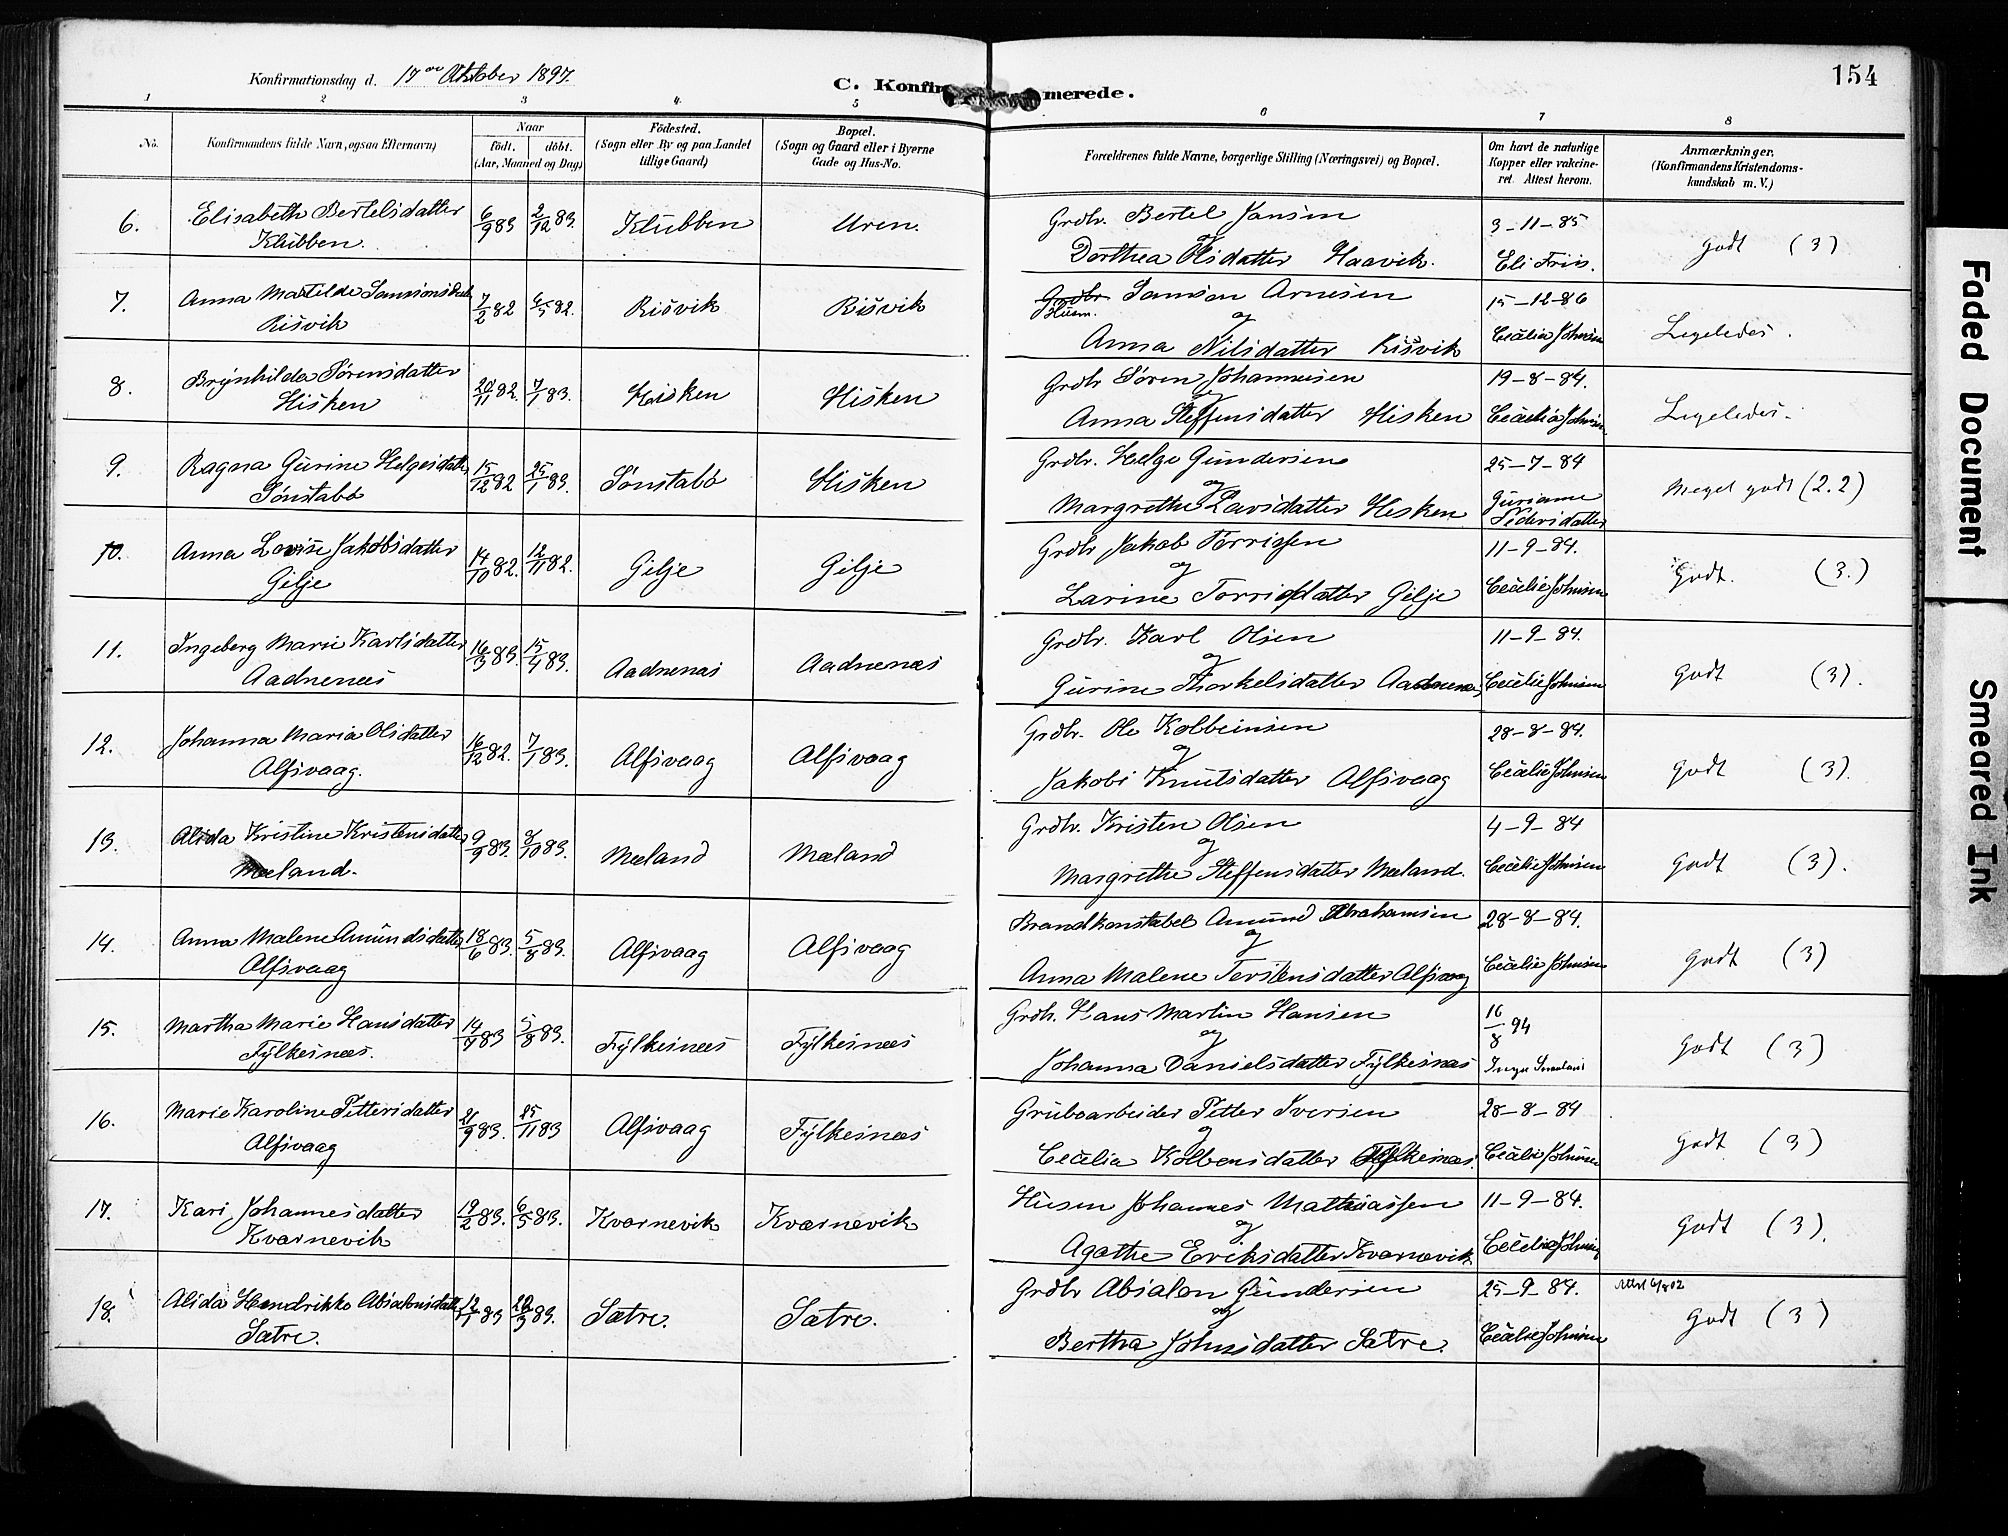 154
Konfirmationsdag d. 17de Oktober 1897.
C. Konfirmerede.
1 2 3 4 5 6 7 8
No. Konfirmandens fulde Navn, ogsaa Efternavn)
Naar
födt. döbt.
(Aar, Maaned og Dag)
Födested.
(Sogn eller By og paa Landet
tillige Gaard)
Bopæl.
(Sogn og Gaard eller i Byerne
Gade og Hus-No.
Forældrenes fulde Navne, borgerlige Stilling (Næringsvei) og Bopæl.
Om havt de naturlige
Kopper eller vakcine-
ret. Attest herom.
Anmærkninger.
(Konfirmandens Kristendoms-
kundskab m. V.)
6. Elisabeth Bertelsdatter 6/9 83 2/12 83. Klubben Uren. Grdbr. Bertel Jansen 3-11-85 godt (3)
Klubben. og
Dorthea Olsdatter Haavik. Eli Friis.
7. Anna Matilde Samsonsdatter 7/2 82 6/5 82. Risvik Risvik Grdbr Samson Arnesen 15-12-86 Ligeledes.
Husm.
Risvik og
Anna Nilsdatter Risvik Cecilia Johnsen
8. Brynhilda Sörensdatter 20/11 82. 7/1 83. Hisken Hisken Grdbr Sören Johannesen 19-8-84. Ligeledes.
Hisken og
Anna Steffensdatter Hisken Cecelia Johnsen
9. Ragna Gurine Helgesdatter 15/12 82 25/1 83. Sönstabö Hisken Grdbr. Helge Gundersen 25-7-84 Meget godt (2.2)
Sönstabö og
Margrethe Larsdatter Hisken Gurianne
Pedersdatter
10. Anna Lovise Jakobsdatter 14/10 82. 12/11 82. Gilje Gilje Grdbr Jakob Torrisen 11-9-84. Godt. (3.)
Gilje og
Larine Torrisdatter Gilje Cecelie Johnsen
11. Ingeberg Marie Karlsdatter 16/3 83. 15/4 83. Aadnenæs Aadnenæs Grdbr. Karl Olsen 11-9-84. Godt (3).
Aadnenæs og
Gurine Thorkelsdatter Aadnenæs Cecelie Johnsen
12. Johanna Maria Olsdatter 16/12 82. 7/1 83. Alfsvaag Alfsvaag Grdbr. Ole Kolbeinsen 28-8-84. Godt (3).
Alfsvaag. og
Jakobi Knutsdatter Alfsvaag Cecelie Johnsen
13. Alida Kristine Kristensdatter 9/9 83. 8/10 83. Mæland Mæland Grdbr. Kristen Olsen 4-9-84 Godt (3).
Mæland. og
Margrethe Steffensdatter Mæland. Cecelie Johnsen
14. Anna Malene Amundsdatter 18/6 83. 5/8 83. Alfsvaag Alfsvaag Brandkonstabel Amund Abrahamsen 28-8-84. Godt (3)
Alfsvaag og
Anna Malene Terstensdatter Alfsvaag Cecelie Johnsen
15. Martha Marie Hansdatter 14/7 83 5/8 83. Fylkesnæs Fylkesnæs Grdbr. Hans Martin Hansen 16/8 94 Godt (3)
Fylkesnæs. og
Johanna Danielsdatter Fylkesnæs
16. Marie Karoline Pettersdatter 21/9 83. 25/11 83 Alfsvaag Fylkesnæs Grubearbeider Petter Iversen 28-8-84 Godt (3)
Alfsvaag og
Cecelia Kolbensdatter Fylkesnæs. Cecelie Johnsen
17. Kari Johannesdatter 19/2 83. 6/5 83. Kvarnevik Kvarnevik Husm Johannes Matthiassen 11-9-84. Godt (3).
Kvarnevik og
Agathe Eriksdatter Kvarnevik Cecelia Johnsen
18. Alida Hendrikke Absalonsdatter 12/1 83 20/3 83. Sætre. Sætre. Grdbr Absalon Gundersen 25-9-84. Attest 6/8 02
Godt (3)
Sætre. og
Bertha Johnsdatter Sætre. Cecelie Johnsen
Faded Document
Smeared Ink